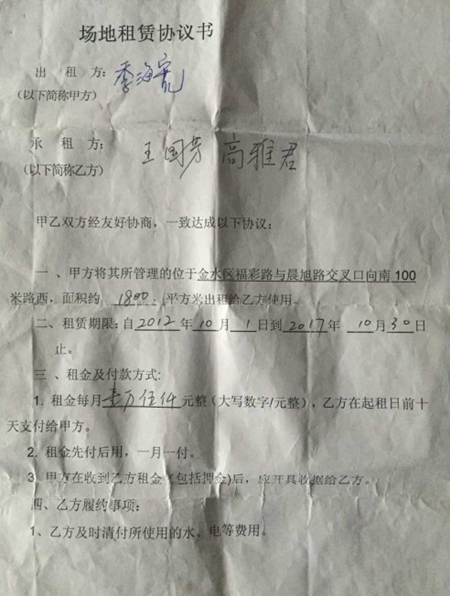 场地租赁协议书
出 租 方：季海宽
（以下简称甲方）
承 租 方： 王国芳 高雅君
（以下简称乙方）
甲乙双方经友好协商，一致达成以下协议：
一 、甲方将其所管理的位于金水区福彩路与晨旭路交叉口向南100
米路西，面积约 1800 平方米出租给乙方使用。
二、租赁期限：自2012年10月1日到2017年 10月30日
止。
三 、租金及付款方式：
1. 租金每月壹万伍仟元整（大写数字/元整），乙方在起租日前十
天支付给甲方。
2. 租金先付后用，一月一付。
3. 甲方在收到乙方租金（包括押金）后，应开具收据给乙方。
四、乙方履约事项：
1、乙方及时清付所使用的水、电等费用。